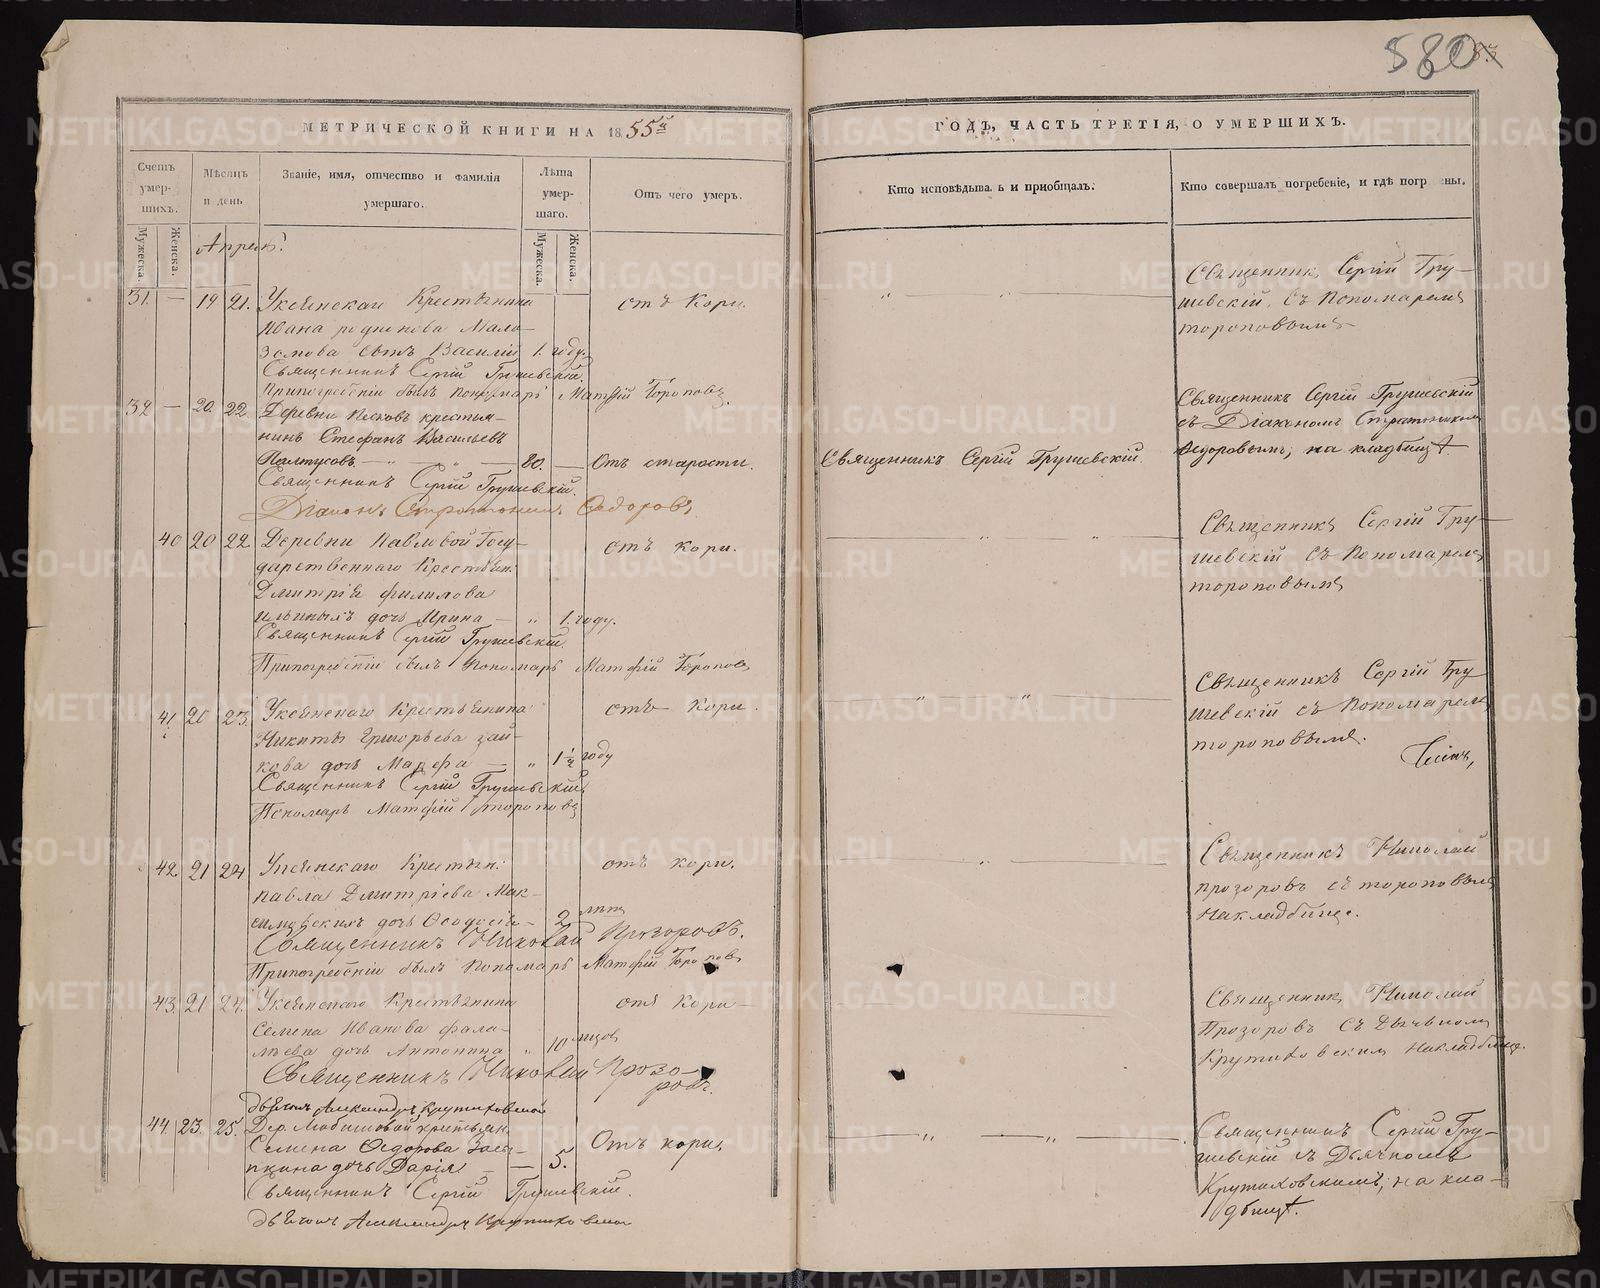 580
МЕТРИЧЕСКОЙ КНИГИ НА 1855й
ГОДЪ, ЧАСТЬ ТРЕТІЯ, О УМЕРШИХЪ.
Счетъ умер-
шихъ.
Мужеска.
Женска.
Мѣсяцъ
и день
Званіе, имя, отчество и фамилія
умершаго.
Лѣта
умер-
шаго.
Мужеска.
Женска.
Отъ чего умеръ.
Кто исповѣдыва ъ и приобщалъ.
Кто совершалъ погребеніе, и гдѣ погр ены.
Апрель.
31. — 19 21. Крестьянина
Ивана Мало-
земова сынъ Василій 1. году.
отъ кори.
Священникъ Сергій Грушевскій.
При погребеніи былъ пономарь Матфій Тороповъ
Священникъ Сергій Гру-
шевскій съ пономаремъ
тороповымъ
32 — 20. 22. Деревни Песковъ крестья-
нинъ Стефанъ Васильевъ
Палтусовъ — 80. —
Отъ старости.
Священникъ Сергій Грушевскій.
Діаконъ Стратоникъ Ѳедоровъ
Священникъ Сергій Грушевскій.
Священникъ Сергій Грушевскій
съ Діакономъ Стратоникомъ
Ѳедоровымъ, на кладбищѣ
40 20 22 Деревни Павловой Госу-
дарственнаго Крестьян:
Дмитрія филипова
дочь Ирина — „ 1. году.
отъ кори.
Священникъ Сергій Грушевскій.
При погребеніи былъ пономарь Матфій Тороповъ
Священникъ Сергій Гру-
шевскій съ пономаремъ
тороповымъ
41. 20 23. Крестьянина
Никиты Григорьева зай-
кова дочь Марфа — „ 1½ году
отъ кори.
Священникъ Сергій Грушевскій
Пономарь Матфій тороповъ
Священникъ Сергій Гру
шевскій съ пономаремъ
тороповымъ.
42. 21 24 Крестьян:
павла Дмитріева Мак-
симовскихъ дочь Ѳеодосія — 2 лѣтъ
отъ кори.
Священникъ Николай Прозоровъ.
При погребеніи былъ пономарь Матфій Тороповъ
Священникъ Николай
прозоровъ съ тороповымъ
На кладбище.
43. 21 24. Крестьянина
Семена Иванова фала-
лѣева дочь Антонина „ 10 мѣсцов
отъ кори
Священникъ Николай Прозо-
ровъ.
дьячекъ Александръ Крутиховской
Священникъ Николай
Прозоровъ съ дьячькомъ
Крутиховскимъ на кладбище.
44. 23. 25. Дер. Любишовой крестьян.
Семена Ѳедорова Засы-
пкина дочь Дарія — — 5.
Отъ кори.
Священникъ Сергій Грушевскій.
дьячекъ Александръ Крутиховской
Священникъ Сергій Гру-
шевскій съ Дьячкомъ
Крутиховскимъ, на кла-
дбищѣ.
METRIKI.GASO-URAL.RU